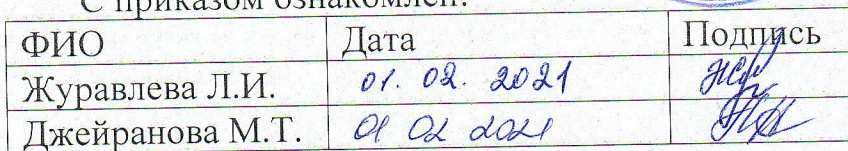 С приказом ознакомлен:
ФИО Дата Подпись
Журавлева Л.И. 01. 02. 2021
Джейранова М.Т. 01 02 2021